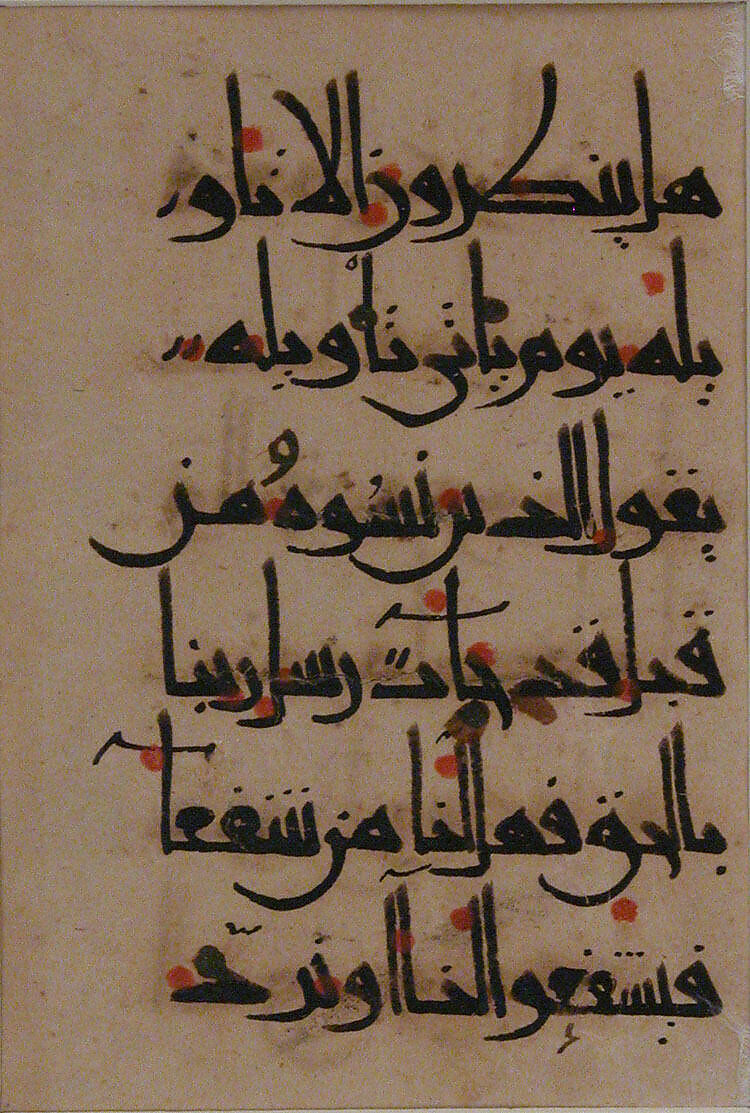 هل ينظرون الا تاو
يله يوم ياتي تاويله
يقول الذين نسوه من
قبل قد جآت رسل ربنا
بالحق فهل لنا من شفعآ
فيشفعوا لنا او نردّ